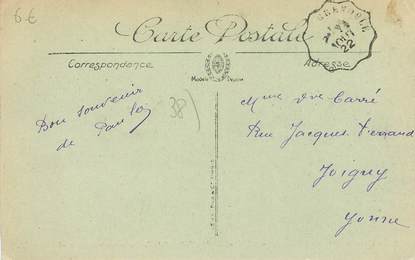 6 €
Carte Postale
Correspondance
Adresse
Modèle Déposé
GRENOBLE
22
Bon souvenir
de Paulo
38)
Mme Vve Carré
Rue Jacques Ferrand
Joigny
Yonne